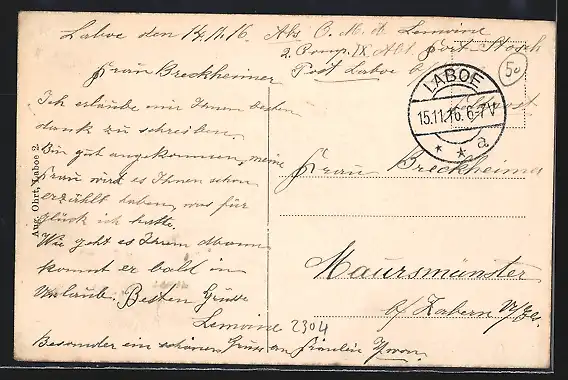 Laboe den 14.11.16. Abs. O. M. A. Lemoine
2. Comp. IX Abt. Fort Stosch
Post Laboe b/
Feldpost
50
LABOE
15.11.16. 6-7V
* * a
Frau Breckheimer
Ich erlaube mir Ihnen besten
dank zu schreiben
Bin gut angekommen, meine
Frau wird es Ihnen schon
erzählt haben, was für
glück ich hatte.
Wie geht es Ihrem Mann
kommt er bald in
Urlaub. Besten Grüsse
Lemoine 2304
Besonder ein schönen Gruss an Fräulein Yvon.
Frau Breckheimer
Maursmünster
b/ Zabern U/Els.
Aug. Ohrt, Laboe 2.